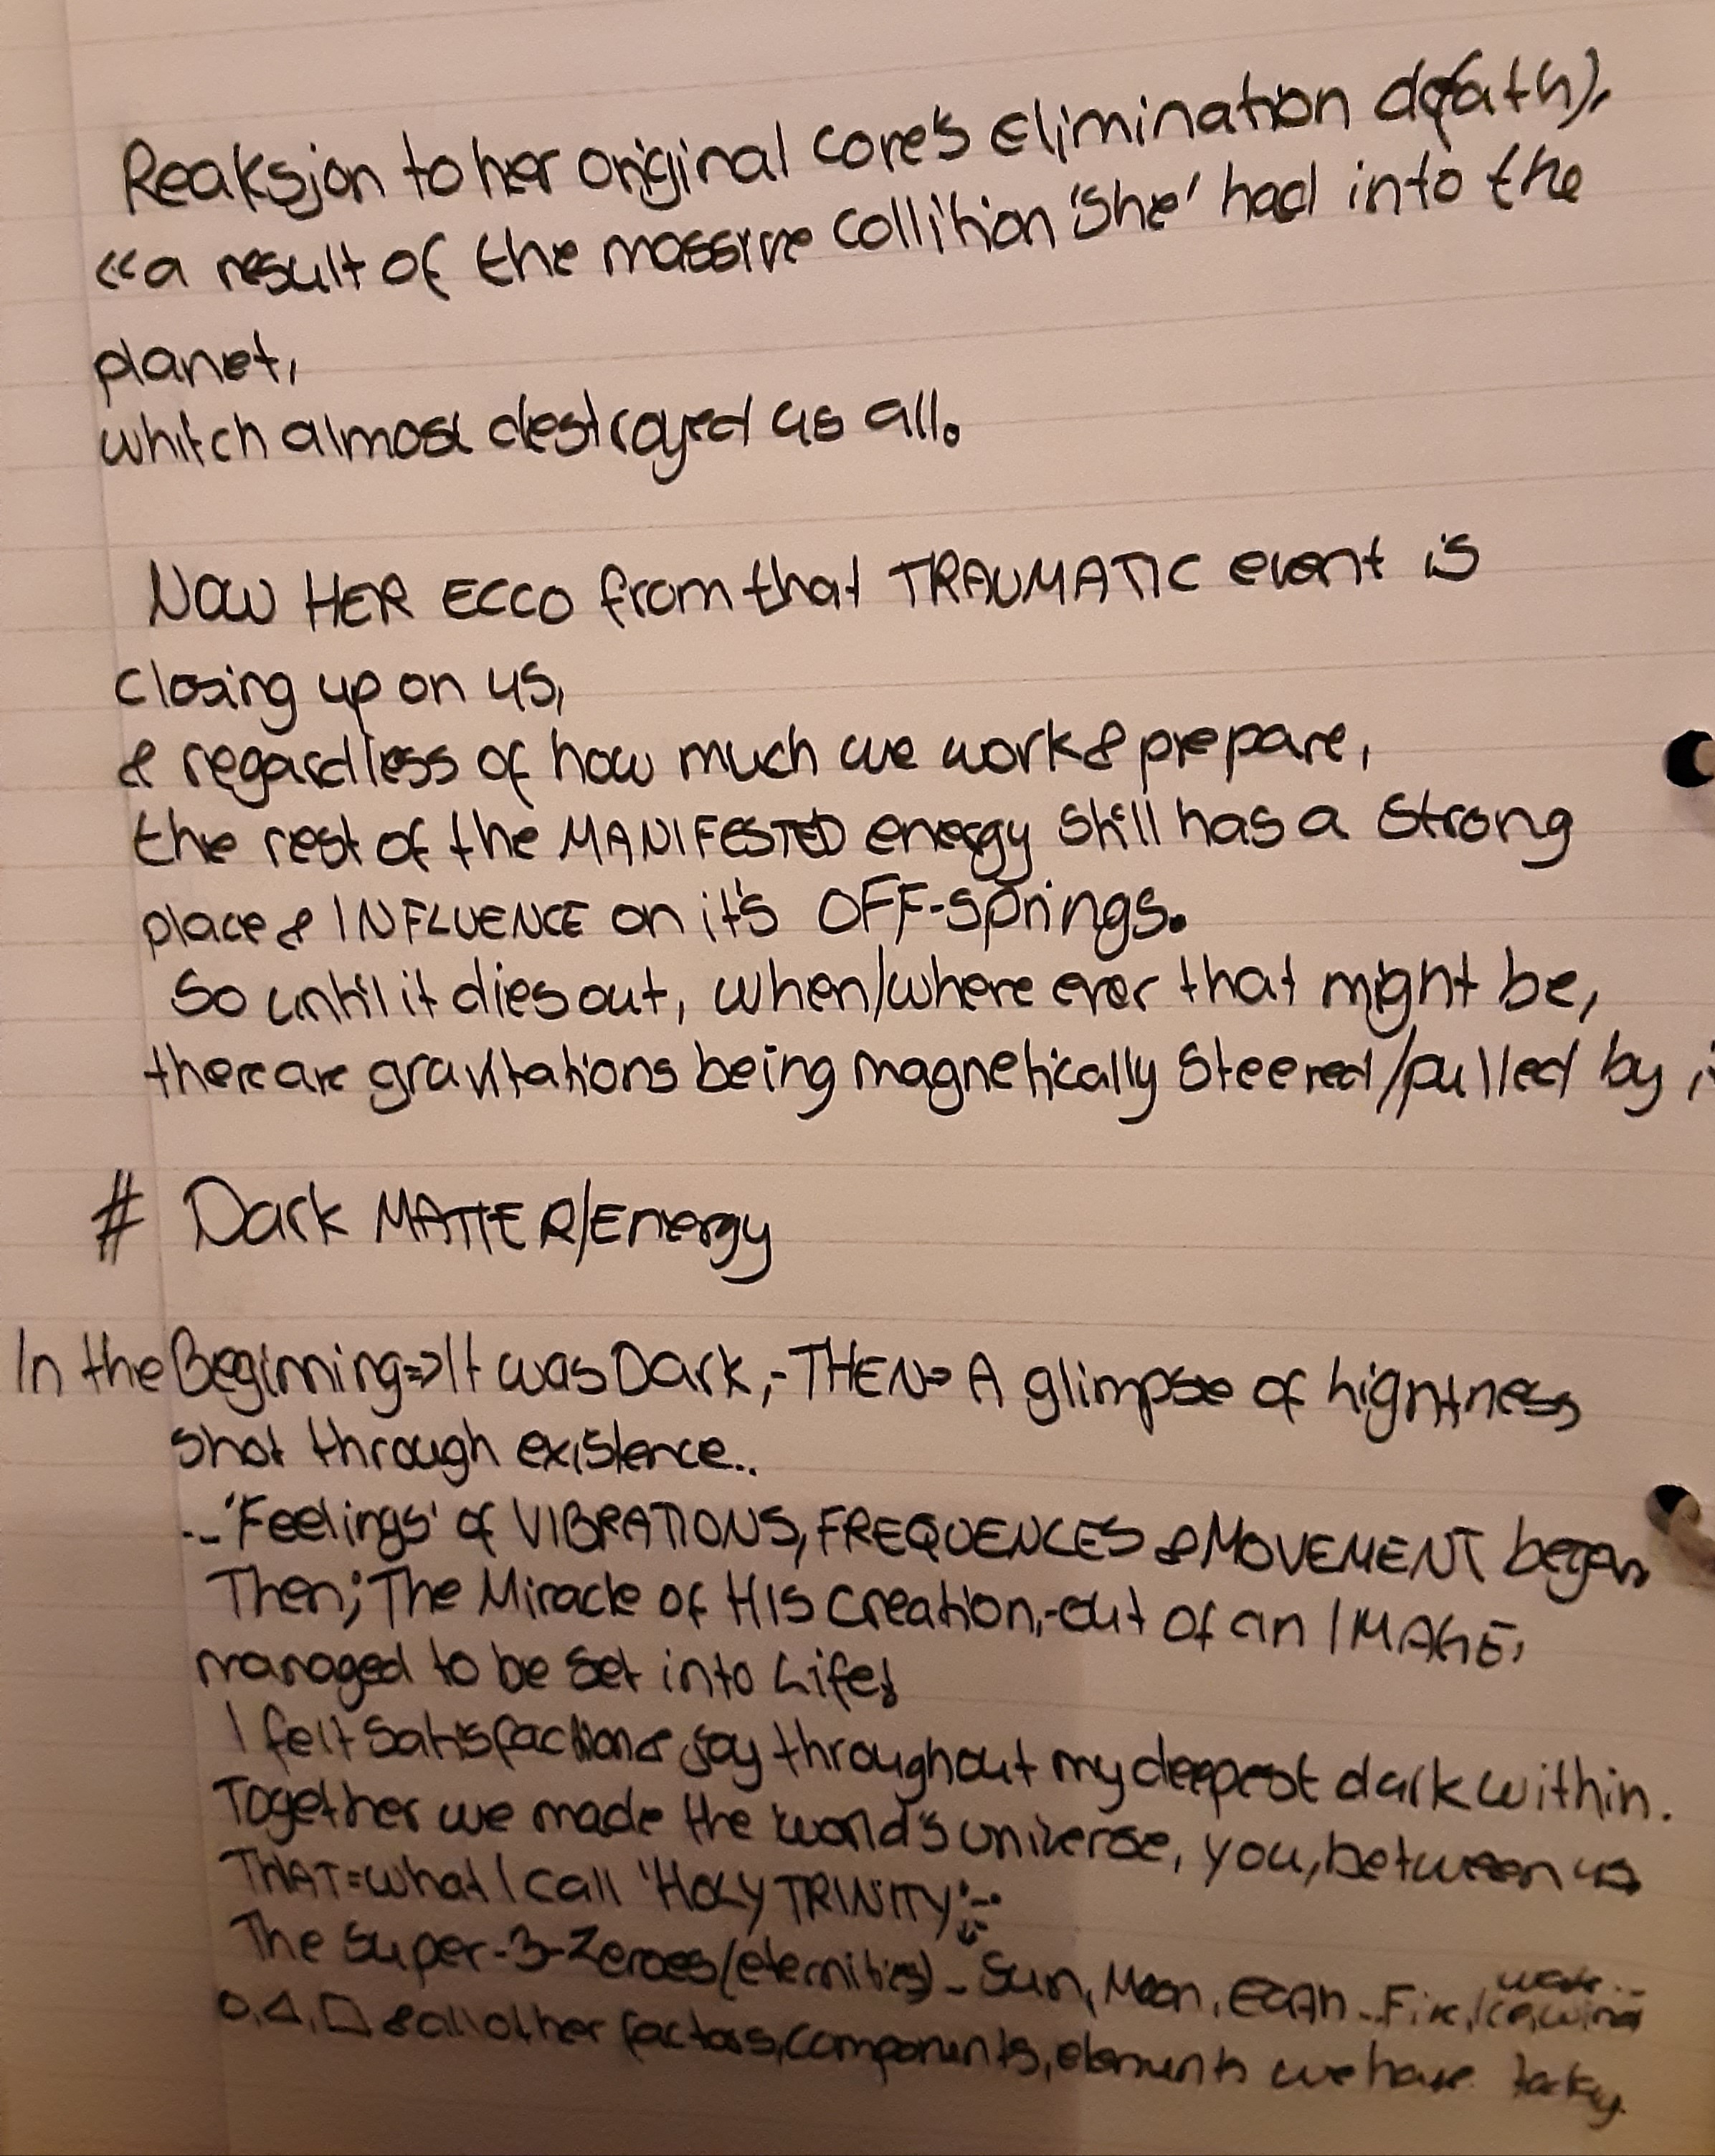 Reaksjon to her original core's elimination death),
«a result of the massive collition 'She' had into the
planet,
whitch almost destroyed us all.
Now HER ECCO from that TRAUMATIC event is
closing up on us,
& regardless of how much we work & prepare,
the rest of the MANIFESTED energy still has a strong
place & INFLUENCE on it's OFF-springs.
So until it dies out, when/where ever that might be,
there are gravitations being magnetically steered/pulled by
# Dark MATTER/Energy
In the Beginning=>It was Dark,-THEN=> A glimpse of
shot through existence..
..'Feelings' of VIBRATIONS, FREQUENCES & MOVEMENT began
Then; The Miracle of HIS creation,-out of an IMAGE,
managed to be set into Life!
I felt Satisfaction & joy throughout my deepest dark within.
Together we made the world's universe, you, between us
THAT=what I call 'HOLY TRINITY':-
The Super-3-Zeroes(eternities)- Sun, Moon, EARth..Fire, Ice, Wind
O, △, □ & all other factors, components, elements we have today.